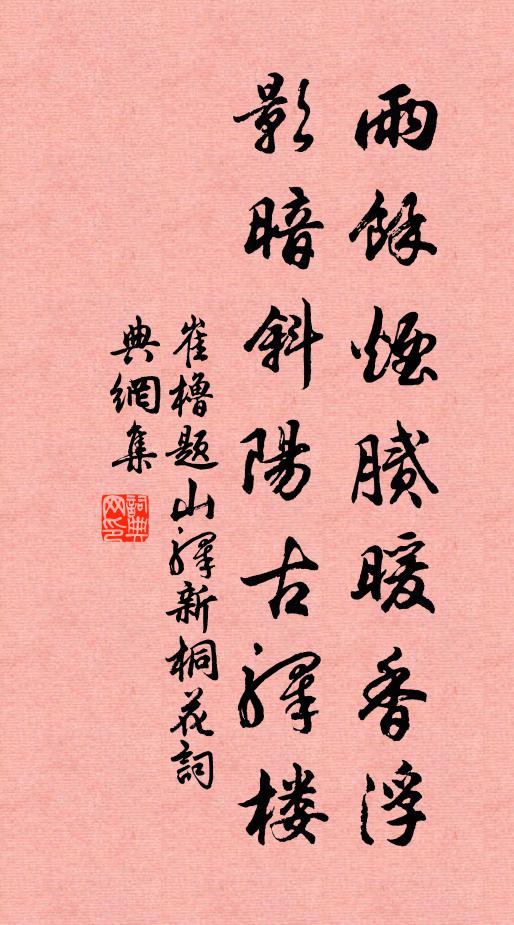 雨餘煙膩暖香浮
影暗斜陽古驛楼
崔櫓題山驛新桐花詞
典網集
詞典
网印